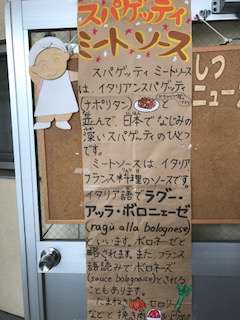 スパゲッティ
ミートソース
スパゲッティ ミートソース
は、イタリアンスパゲッティ
(ナポリタン) と
並んで、日本でなじみの
深いスパゲッティのひとつ
です。
ミートソースは イタリア
フランス料理のソースです。
イタリア語で ラグー・
アッラ・ボロニェーゼ
(ragù alla bolognese)
といいます。ボロネーゼと
略されます。また、フランス
語読みで ボロネーズ
(sauce bolognaise)とされる
こともあります。
たまねぎ セロリ
などと 挽き肉
しつ
ニュー